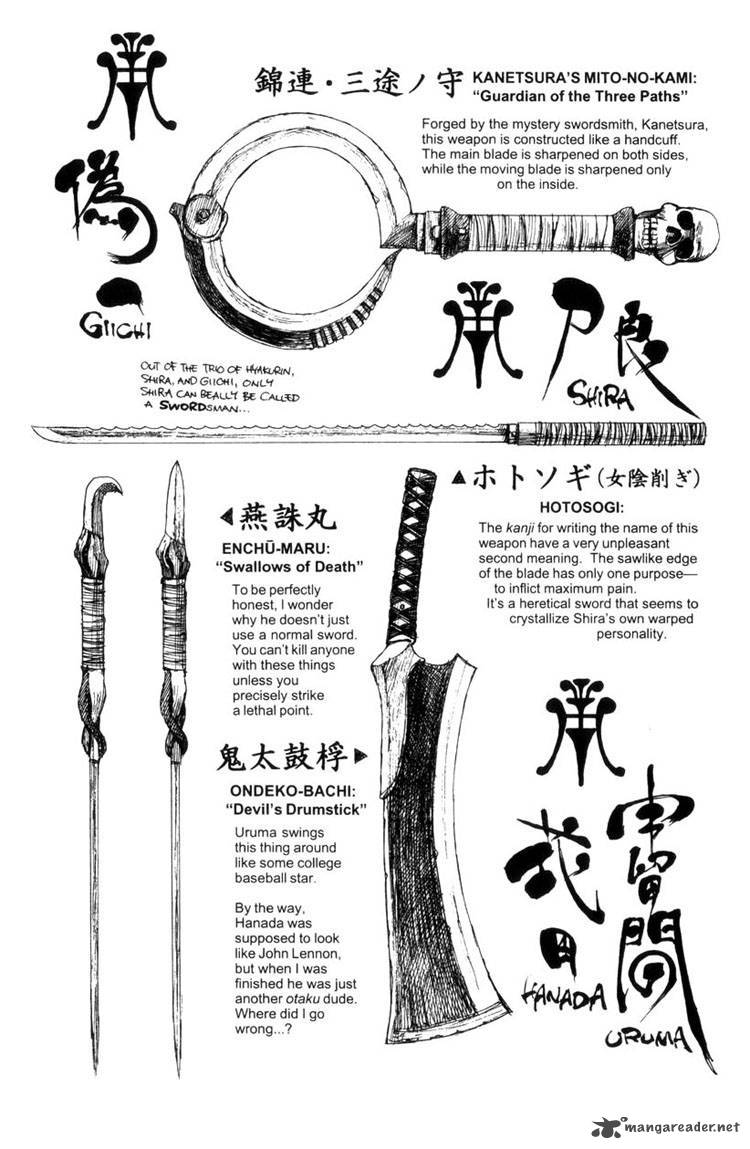 錦連・三途ノ守
KANETSURA'S MITO-NO-KAMI:
"Guardian of the Three Paths"
Forged by the mystery swordsmith, Kanetsura,
this weapon is constructed like a handcuff.
The main blade is sharpened on both sides,
while the moving blade is sharpened only
on the inside.
偽一
GIICHI
尸良
SHIRA
OUT OF THE TRIO OF HYAKURIN,
SHIRA, AND GIICHI, ONLY
SHIRA CAN REALLY BE CALLED
A SWORDSMAN...
▲ホトソギ(女陰削ぎ)
HOTOSOGI:
The kanji for writing the name of this
weapon have a very unpleasant
second meaning. The sawlike edge
of the blade has only one purpose—
to inflict maximum pain.
It's a heretical sword that seems to
crystallize Shira's own warped
personality.
◀燕誅丸
ENCHŪ-MARU:
"Swallows of Death"
To be perfectly
honest, I wonder
why he doesn't just
use a normal sword.
You can't kill anyone
with these things
unless you
precisely strike
a lethal point.
鬼太鼓桴▶
ONDEKO-BACHI:
"Devil's Drumstick"
Uruma swings
this thing around
like some college
baseball star.
By the way,
Hanada was
supposed to look
like John Lennon,
but when I was
finished he was just
another otaku dude.
Where did I go
wrong...?
花田
HANADA
宇留間
URUMA
mangareader.net